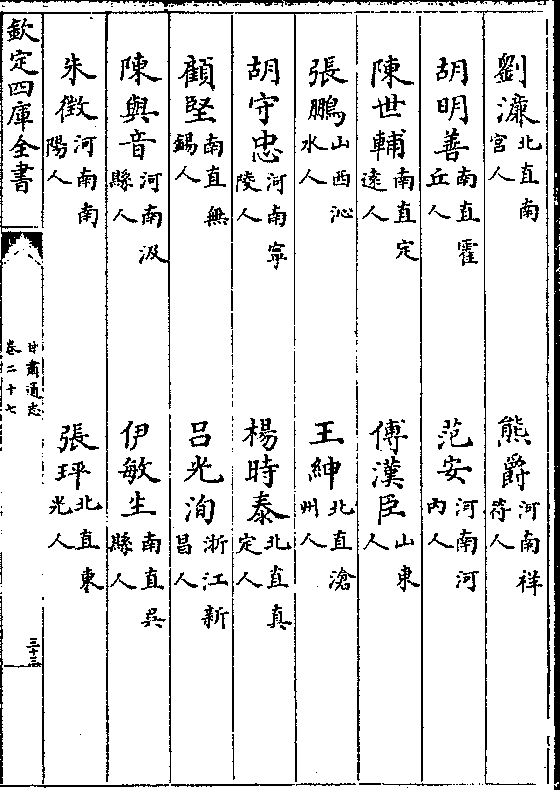 劉濂北直南宫人　熊爵河南祥符人
胡明善南直霍丘人　范安河南河内人
陳世輔南直定遠人　傅漢臣山東人
張鵬山西沁水人　王紳北直滄州人
胡守忠河南寧陵人　楊時泰北直真定人
顧堅南直無錫人　呂光洵浙江新昌人
陳與音河南汲縣人　伊敏生南直吳縣人
朱徴河南南陽人　張坪北直東光人
欽定四庫全書　甘肅通志卷二十七　三十三